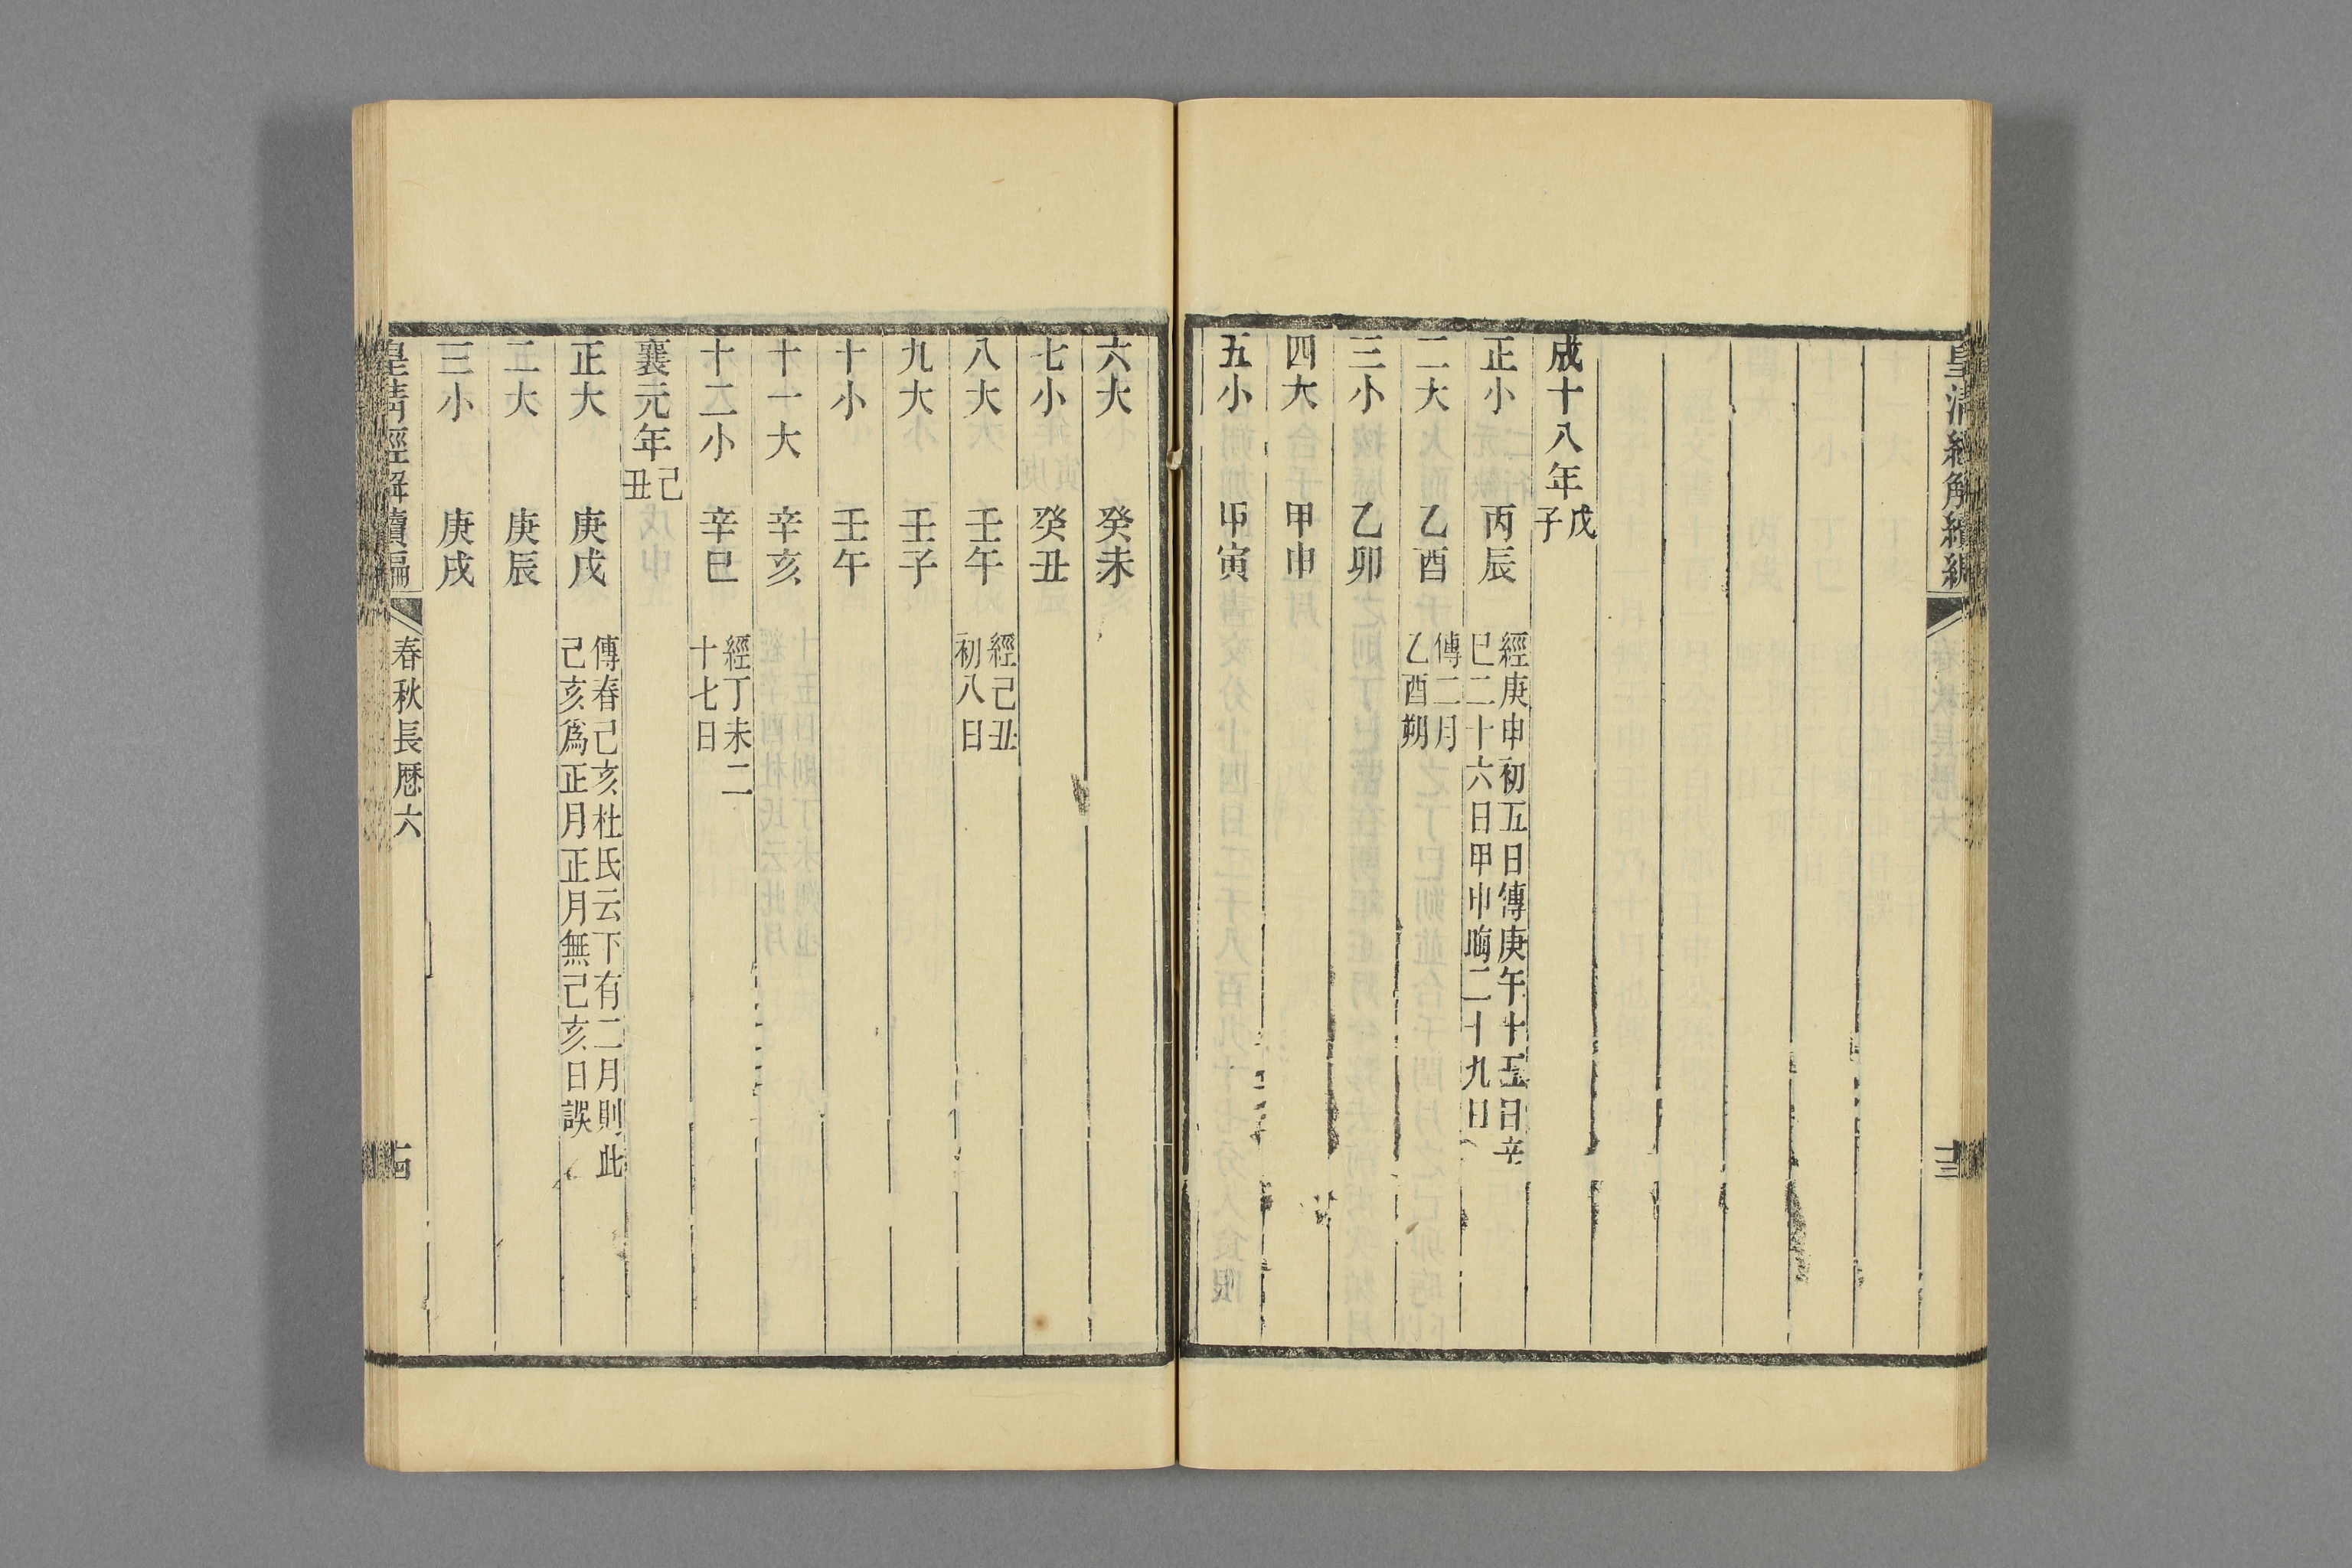 成十八年戊子
正小 丙辰 經庚申初五日傳庚午十五日辛
巳二十六日甲申晦二十九日
二大 乙酉 傳二月
乙酉朔
三小 乙卯
四大 甲申
五小 甲寅
六大 癸未
七小 癸丑
八大 壬午 經己丑
初八日
九大 壬子
十小 壬午
十一大 辛亥
十二小 辛巳 經丁未二
十七日
襄元年己丑
正大 庚戌 傳春己亥杜氏云下有二月則此
己亥爲正月正月無己亥日誤
二大 庚辰
三小 庚戌
皇清經解續編 春秋長厤六 十四